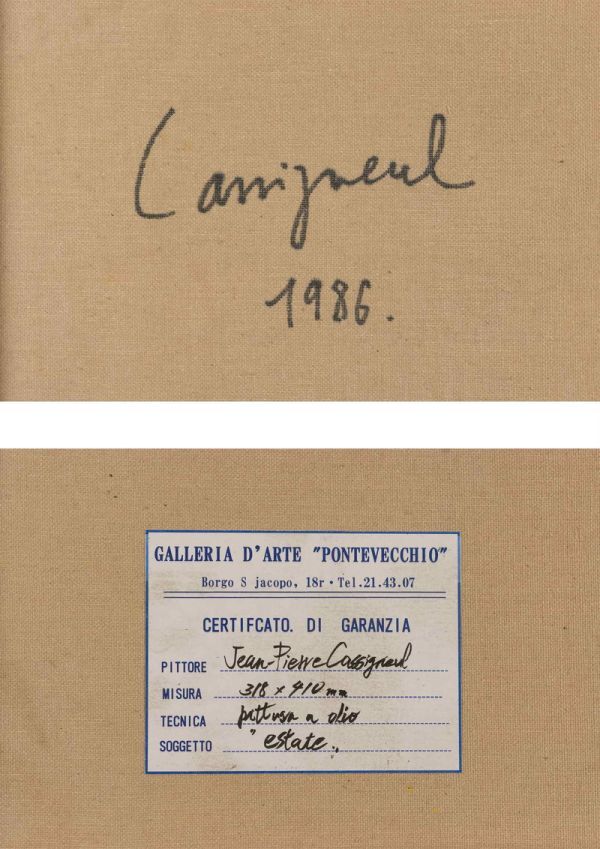 Cassigneul
1986.
GALLERIA D'ARTE "PONTEVECCHIO"
Borgo S jacopo, 18r・Tel.21.43.07
CERTIFCATO. DI GARANZIA
PITTORE Jean-Pierre Cassigneul
MISURA 318 x 410 mm
TECNICA pittura a olio
SOGGETTO "estate„